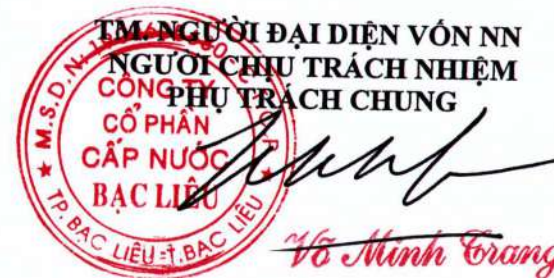 TM. NGƯỜI ĐẠI DIỆN VỐN NN
NGƯỜI CHỊU TRÁCH NHIỆM
PHỤ TRÁCH CHUNG
CÔNG TY
CỔ PHẦN
CẤP NƯỚC
BẠC LIÊU
★ M.S.D.N:
TP. BẠC LIÊU - T. BẠC LIÊU
Võ Minh Trang